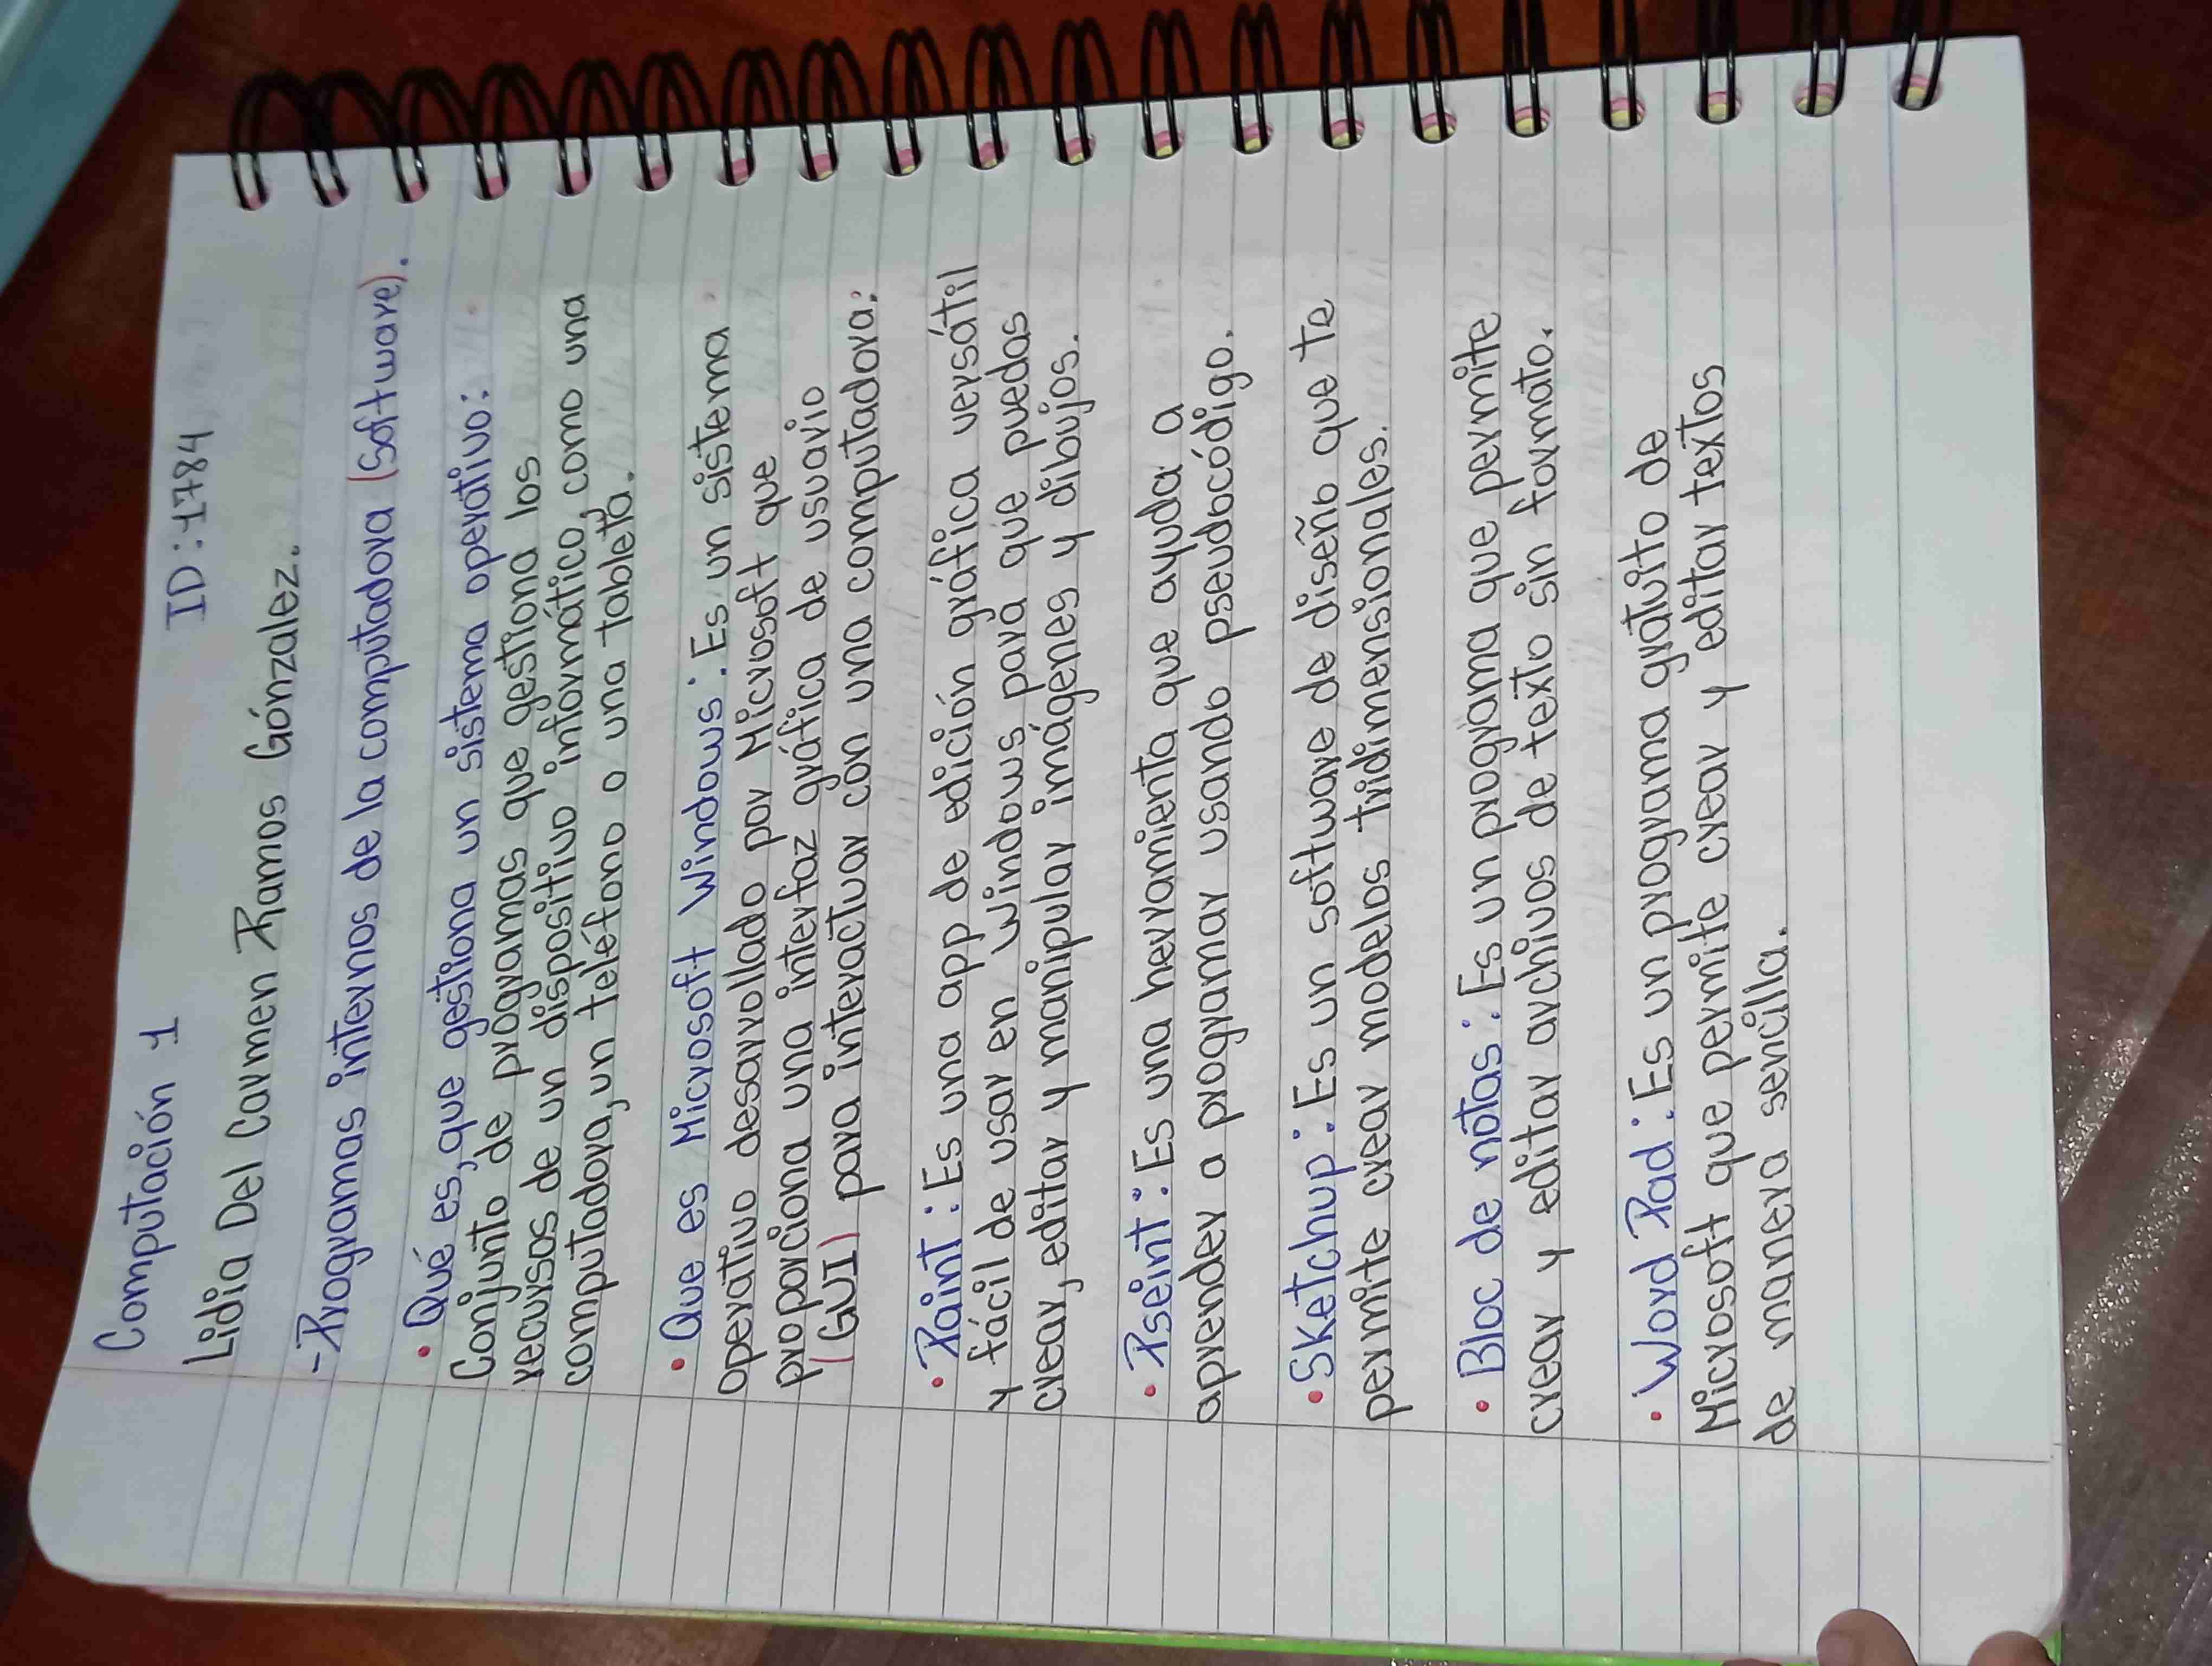 Computación 1 ID:1784
Lidia Del Carmen Ramos Gónzalez.
-Programas internos de la computadora (Software).
• Qué es, que gestiona un sistema operativo:
Conjunto de programas que gestiona los
recursos de un dispositivo informático, como una
computadora, un teléfono o una tableta.
• Que es Microsoft Windows: Es un sistema
operativo desarrollado por Microsoft que
proporciona una interfaz gráfica de usuario
(GUI) para interactuar con una computadora.
• Paint: Es una app de edición gráfica versátil
y fácil de usar en Windows para que puedas
crear, editar y manipular imágenes y dibujos.
• Pseint: Es una herramienta que ayuda a
aprender a programar usando pseudocódigo.
• Sketchup: Es un software de diseño que te
permite crear modelos tridimensionales.
• Bloc de notas: Es un programa que permite
crear y editar archivos de texto sin formato.
• Word Pad: Es un programa gratuito de
Microsoft que permite crear y editar textos
de manera sencilla.